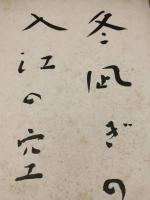 冬凪ぎの
入江の空